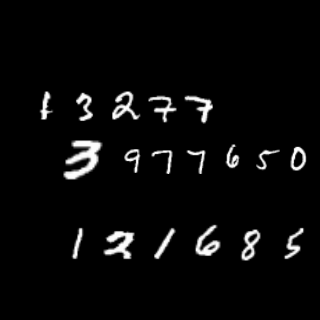 13277
3977650
121685